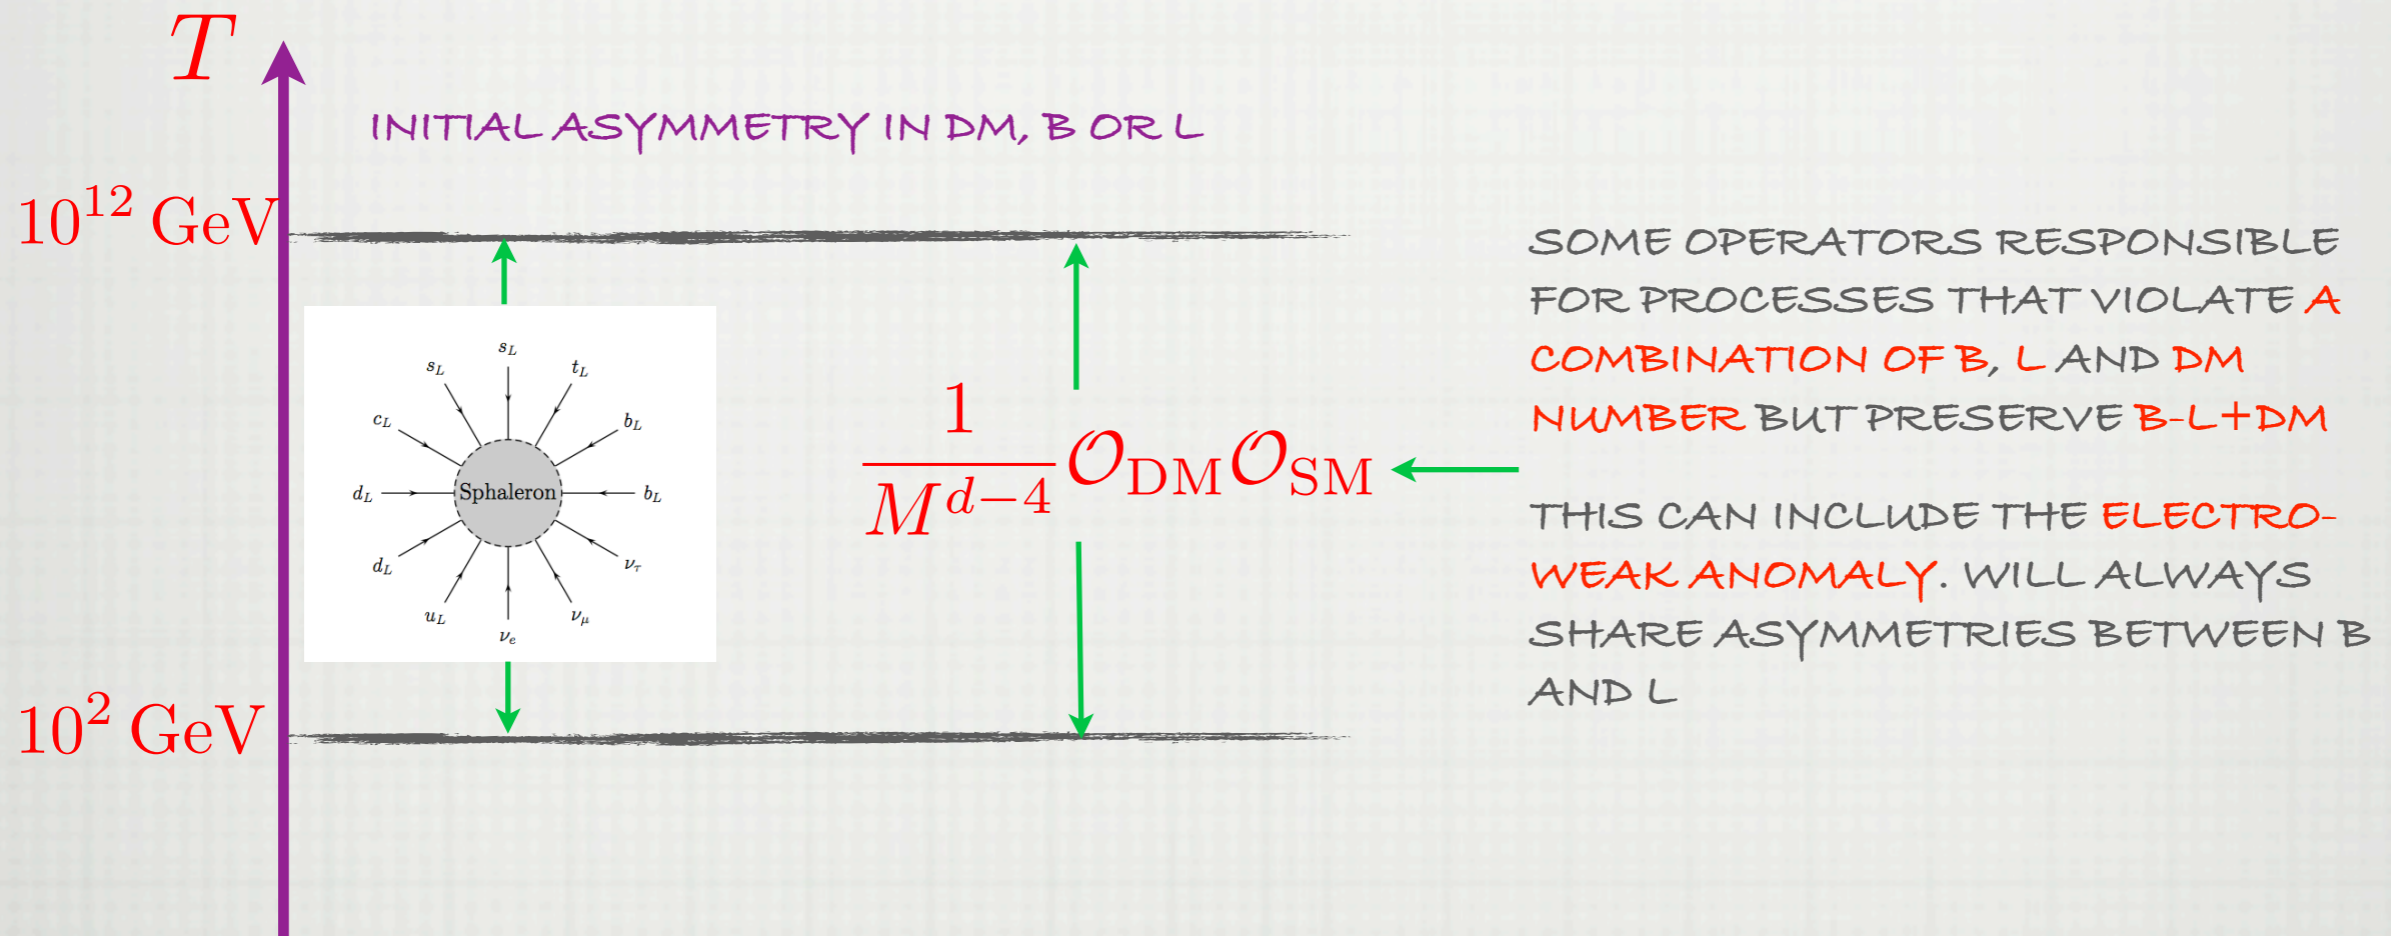 T
INITIAL ASYMMETRY IN DM, B OR L
10^{12} GeV
s_L
s_L
t_L
c_L
b_L
d_L
Sphaleron
b_L
d_L
ν_τ
u_L
ν_μ
ν_e
\frac{1}{M^{d-4}} \mathcal{O}_{DM} \mathcal{O}_{SM}
SOME OPERATORS RESPONSIBLE
FOR PROCESSES THAT VIOLATE A
COMBINATION OF B, L AND DM
NUMBER BUT PRESERVE B-L+DM
THIS CAN INCLUDE THE ELECTRO-
WEAK ANOMALY. WILL ALWAYS
SHARE ASYMMETRIES BETWEEN B
AND L
10^2 GeV